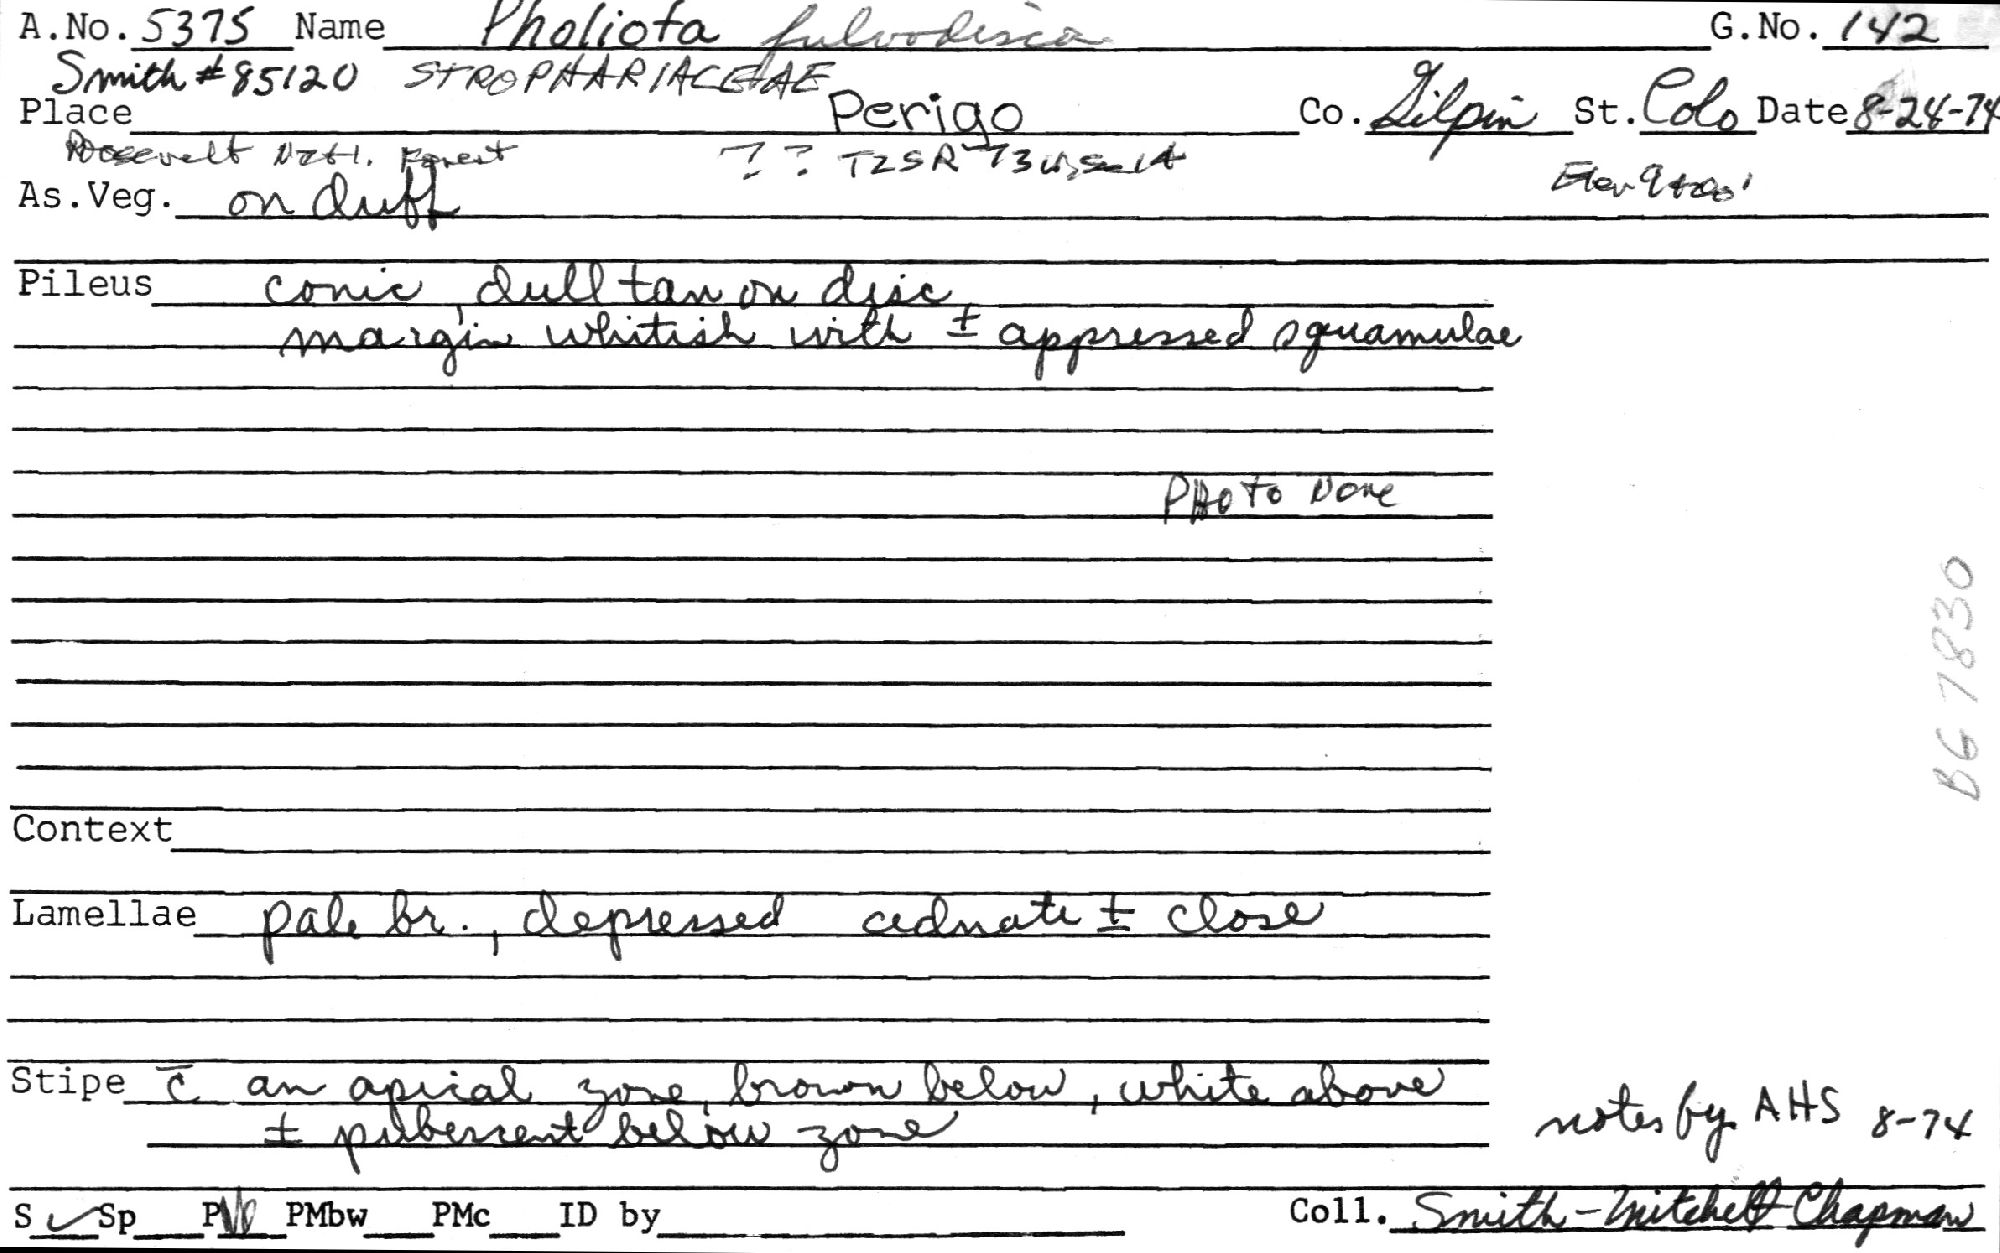 A.No. 5375 Name Pholiota fulvodisca G.No. 142
Smith #85120 STROPHARIACEAE
Place Perigo Co. Gilpin St. Colo Date 8-24-74
Roosevelt Natl. Forest ? ? T2SR 73W, Sec 14 Elev
As.Veg. on duff
Pileus conic, dull tan on disc
margin whitish with ± appressed squamulae
PHOTO Done
BG 7830
Context
Lamellae pale br., depressed adnate ± close
Stipe c̄ an apical zone, brown below, white above
± pubescent below zone
notes by AHS 8-74
S ✓ Sp P PMbw PMc ID by Coll. Smith-Mitchell Chapman